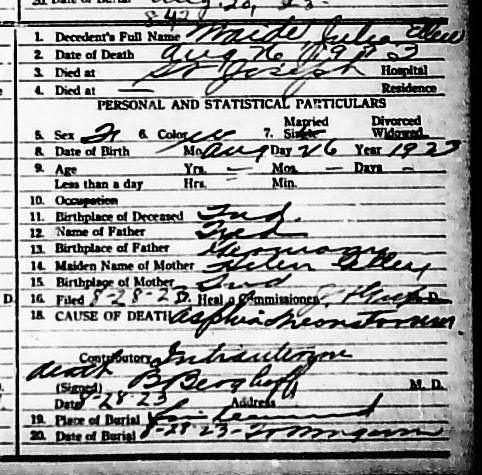 20. Date of Burial Aug. 28, 23.
1. Decedent's Full Name Julia Ellen
2. Date of Death Aug 26 1923
3. Died at St Joseph Hospital
4. Died at — Residence
PERSONAL AND STATISTICAL PARTICULARS
5. Sex F 6. Color W 7. Married Single Divorced Widowed
8. Date of Birth Mo. Aug Day 26 Year 1923
9. Age Yrs. — Mos. — Days —
Less than a day Hrs. Min.
10. Occupation
11. Birthplace of Deceased Ind.
12. Name of Father Fred
13. Birthplace of Father Germany
14. Maiden Name of Mother Helen
15. Birthplace of Mother Ind
D. 16. Filed 8-28-23. Health Commissioner M.D.
18. CAUSE OF DEATH Asphixia neonatorum
Contributory Intrauterine
death
(Signed) B Berghoff M. D.
Date 8-28-23 Address
19. Place of Burial Lindenwood
20. Date of Burial 8-28-23